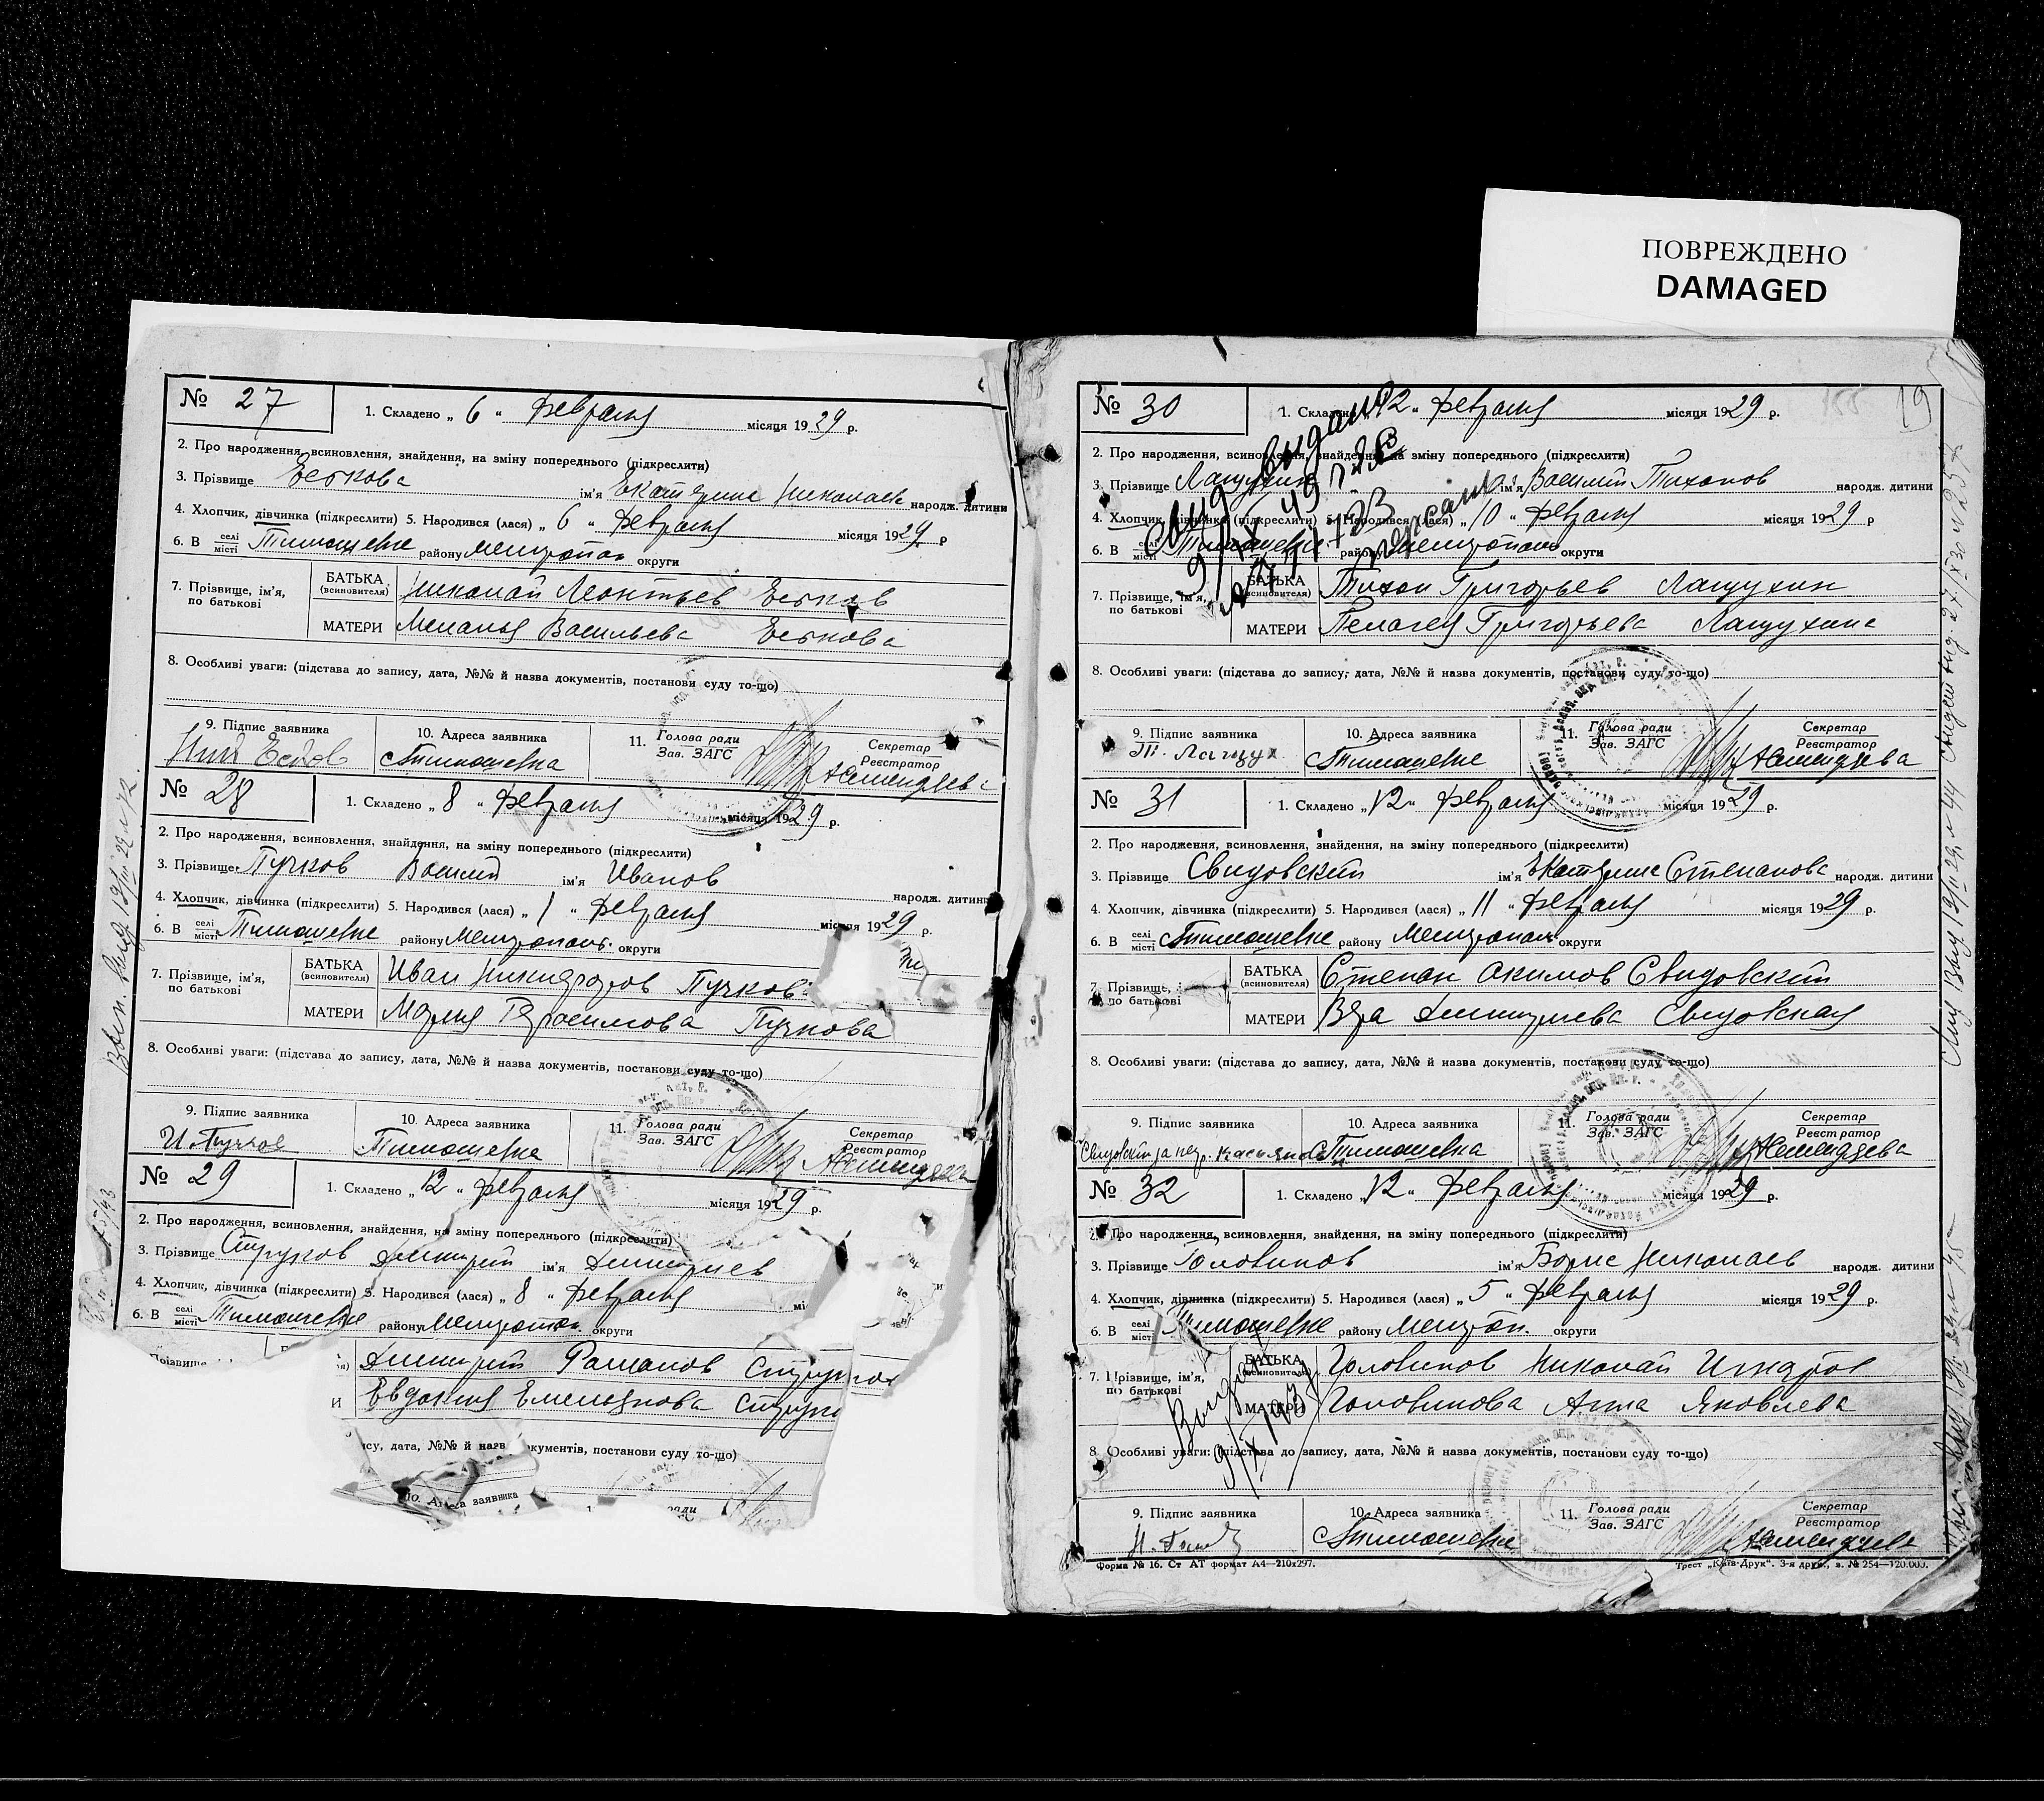 ПОВРЕЖДЕНО
DAMAGED
№ 27
1. Складено „ 6 “ февраля місяця 1929 р.
2. Про народження, всиновлення, знайдення, на зміну попереднього (підкреслити)
3. Прізвище ім'я Екатерина Николаева народж. дитини
4. Хлопчик, дівчинка (підкреслити) 5. Народився (лася) „ 6 “ февраля місяця 1929 р
6. В селі місті Тимошевке району Мелитопол округи
7. Прізвище, ім'я, по батькові
БАТЬКА (всиновителя) Николай Леонтьев
МАТЕРИ Меланья Васильева
8. Особливі уваги: (підстава до запису, дата, №№ й назва документів, постанови суду то-що)
9. Підпис заявника
10. Адреса заявника с Тимошевка
11. Голова ради Зав. ЗАГС
Секретар Реєстратор
№ 28
1. Складено „ 8 “ февраля місяця 1929 р.
2. Про народження, всиновлення, знайдення, на зміну попереднього (підкреслити)
3. Прізвище Пучков Василий ім'я Иванов народж. дитини
4. Хлопчик, дівчинка (підкреслити) 5. Народився (лася) „ 1 “ февраля місяця 1929 р.
6. В селі місті Тимошевке району Мелитополь. округи
7. Прізвище, ім'я, по батькові
БАТЬКА (всиновителя) Иван Никифоров Пучков
МАТЕРИ Мария Герасимова Пучкова
8. Особливі уваги: (підстава до запису, дата, №№ й назва документів, постанови суду то-що)
9. Підпис заявника И. Пучков
10. Адреса заявника Тимошевка
11. Голова ради Зав. ЗАГС
Секретар Реєстратор
№ 29
1. Складено „ 12 “ февраля місяця 1929 р.
2. Про народження, всиновлення, знайдення, на зміну попереднього (підкреслити)
3. Прізвище Стружков Дмитрий ім'я Дмитриев
4. Хлопчик, дівчинка (підкреслити) 5. Народився (лася) „ 8 “ февраля мі
6. В селі місті Тимошевке району Мелитопол. округи
Прізвище
Дмитрий Романов
Евдокия Емельянова
ису, дата, №№ й назв окументів, постанови суду то-що)
10. Адреса заявника
ради
19
№ 30
1. Складено „ 12 “ февраля місяця 1929 р.
2. Про народження, всиновлення, знайдення, на зміну попереднього (підкреслити)
3. Прізвище Лащухин ім'я Василий Тихонов народж. дитини
4. Хлопчик, дівчинка (підкреслити) 5. Народився (лася) „ 10 “ февраля місяця 1929 р
6. В селі місті Тимошевке району Мелитополь округи
7. Прізвище, ім'я, по батькові
БАТЬКА (всиновителя) Тихон Григорьев Лащухин
МАТЕРИ Пелагея Григорьева Лащухина
8. Особливі уваги: (підстава до запису, дата, №№ й назва документів, постанови суду то-що)
9. Підпис заявника Т. Лащух
10. Адреса заявника с Тимошевке
11. Голова ради Зав. ЗАГС
Секретар Реєстратор
№ 31
1. Складено „ 12 “ февраля місяця 1929 р.
2. Про народження, всиновлення, знайдення, на зміну попереднього (підкреслити)
3. Прізвище Свидовский ім'я Екатерина Степанова народж. дитини
4. Хлопчик, дівчинка (підкреслити) 5. Народився (лася) „ 11 “ февраля місяця 1929 р.
6. В селі місті с Тимошевке району Мелитопол округи
7. Прізвище, по батькові
БАТЬКА (всиновителя) Степан Акимов Свидовский
МАТЕРИ Вера Дмитриева Свидовская
8. Особливі уваги: (підстава до запису, дата, №№ й назва документів, постанови суду то-що)
9. Підпис заявника Свидовский за негр.
10. Адреса заявника с Тимошевка
11. Голова ради Зав. ЗАГС
Секретар Реєстратор
№ 32
1. Складено „ 12 “ февраля місяця 1929 р.
2. Про народження, всиновлення, знайдення, на зміну попереднього (підкреслити)
3. Прізвище Головинов ім'я Борис Николаев народж. дитини
4. Хлопчик, дівчинка (підкреслити) 5. Народився (лася) „ 5 “ февраля місяця 1929 р.
6. В селі місті Тимошевке району Мелитоп. округи
7. Прізвище, ім'я, по батькові
БАТЬКА (всиновителя) Головинов Николай Игнатов
МАТЕРИ Головинова Анна Яковлева
8 Особливі уваги: (підстава до запису, дата, №№ й назва документів, постанови суду то-що)
9. Підпис заявника
10. Адреса заявника с Тимошевке
11. Голова ради Зав. ЗАГС
Секретар Реєстратор
Форма № 16. Ст АТ формат А4—210х297.
Трест „Київ-Друк“. 3-я друк., з. № 254—120.000.